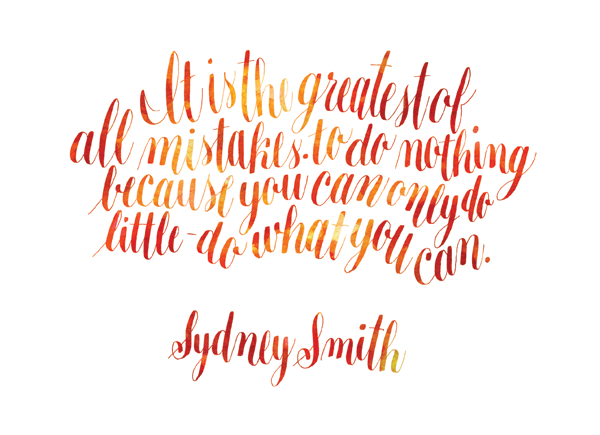 It is the greatest of
all mistakes. to do nothing
because you can only do
little - do what you can.
Sydney Smith